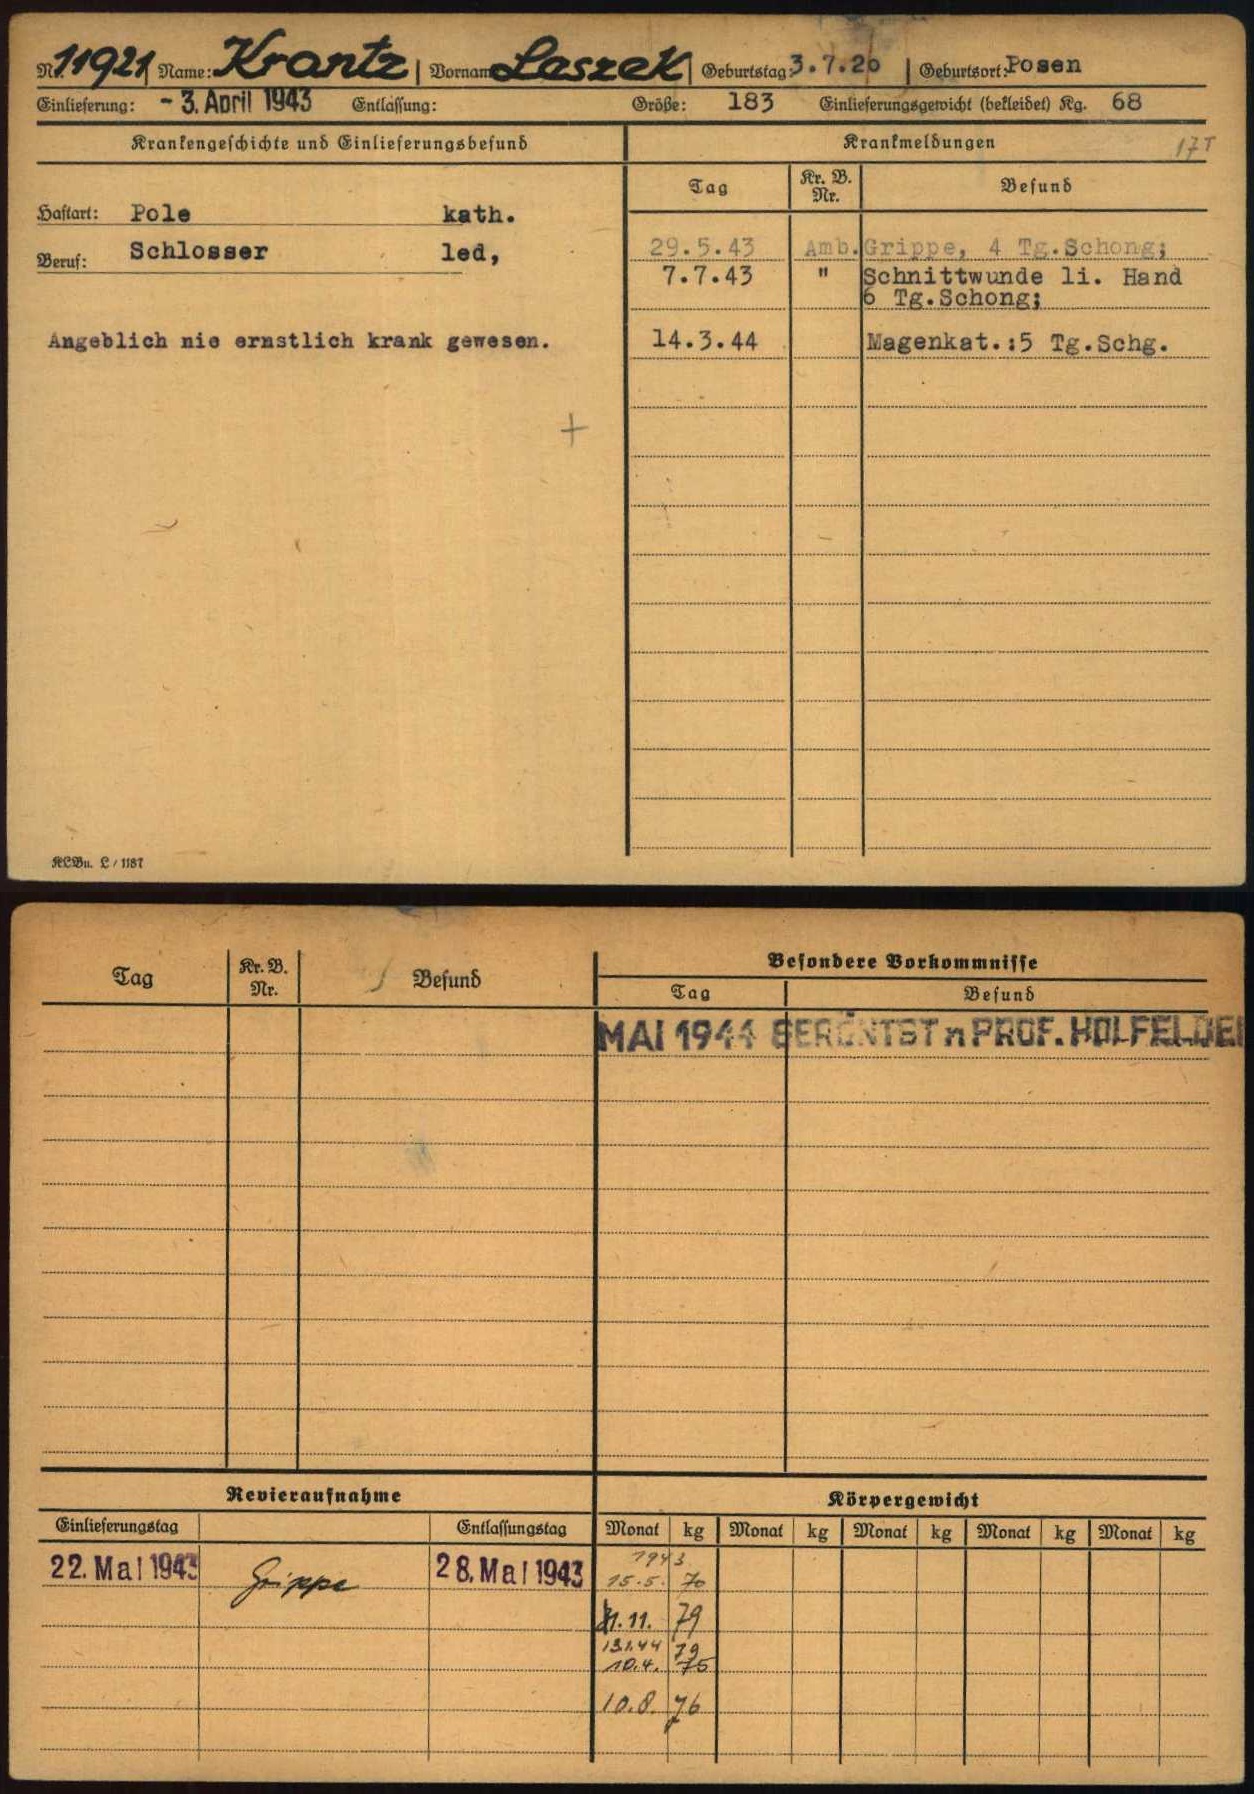 Nr. 11921 Name: Krantz Vorname: Leszek Geburtstag: 3.7.20 Geburtsort: Posen
Einlieferung: - 3. April 1943 Entlassung: Größe: 183 Einlieferungsgewicht (bekleidet) Kg. 68
Krankengeschichte und Einlieferungsbefund
Krankmeldungen
17 T
Tag Kr. B. Nr. Befund
Haftart: Pole kath.
Beruf: Schlosser led,
Angeblich nie ernstlich krank gewesen.
29.5.43 Amb. Grippe, 4 Tg.Schong;
7.7.43 " Schnittwunde li. Hand
6 Tg.Schong;
14.3.44 Magenkat.:5 Tg.Schg.
+
KLBu. L / 1187
Tag Kr. B. Nr. Befund
Besondere Vorkommnisse
Tag Befund
MAI 1944 GERÖNTGT PROF. HOLFELDER
Revieraufnahme
Einlieferungstag Entlassungstag
22. Mai 1943 Grippe 28. Mai 1943
Körpergewicht
Monat kg Monat kg Monat kg Monat kg Monat kg
1943
15.5. 70
1.11. 79
13.1.44 79
10.4. 75
10.8. 76